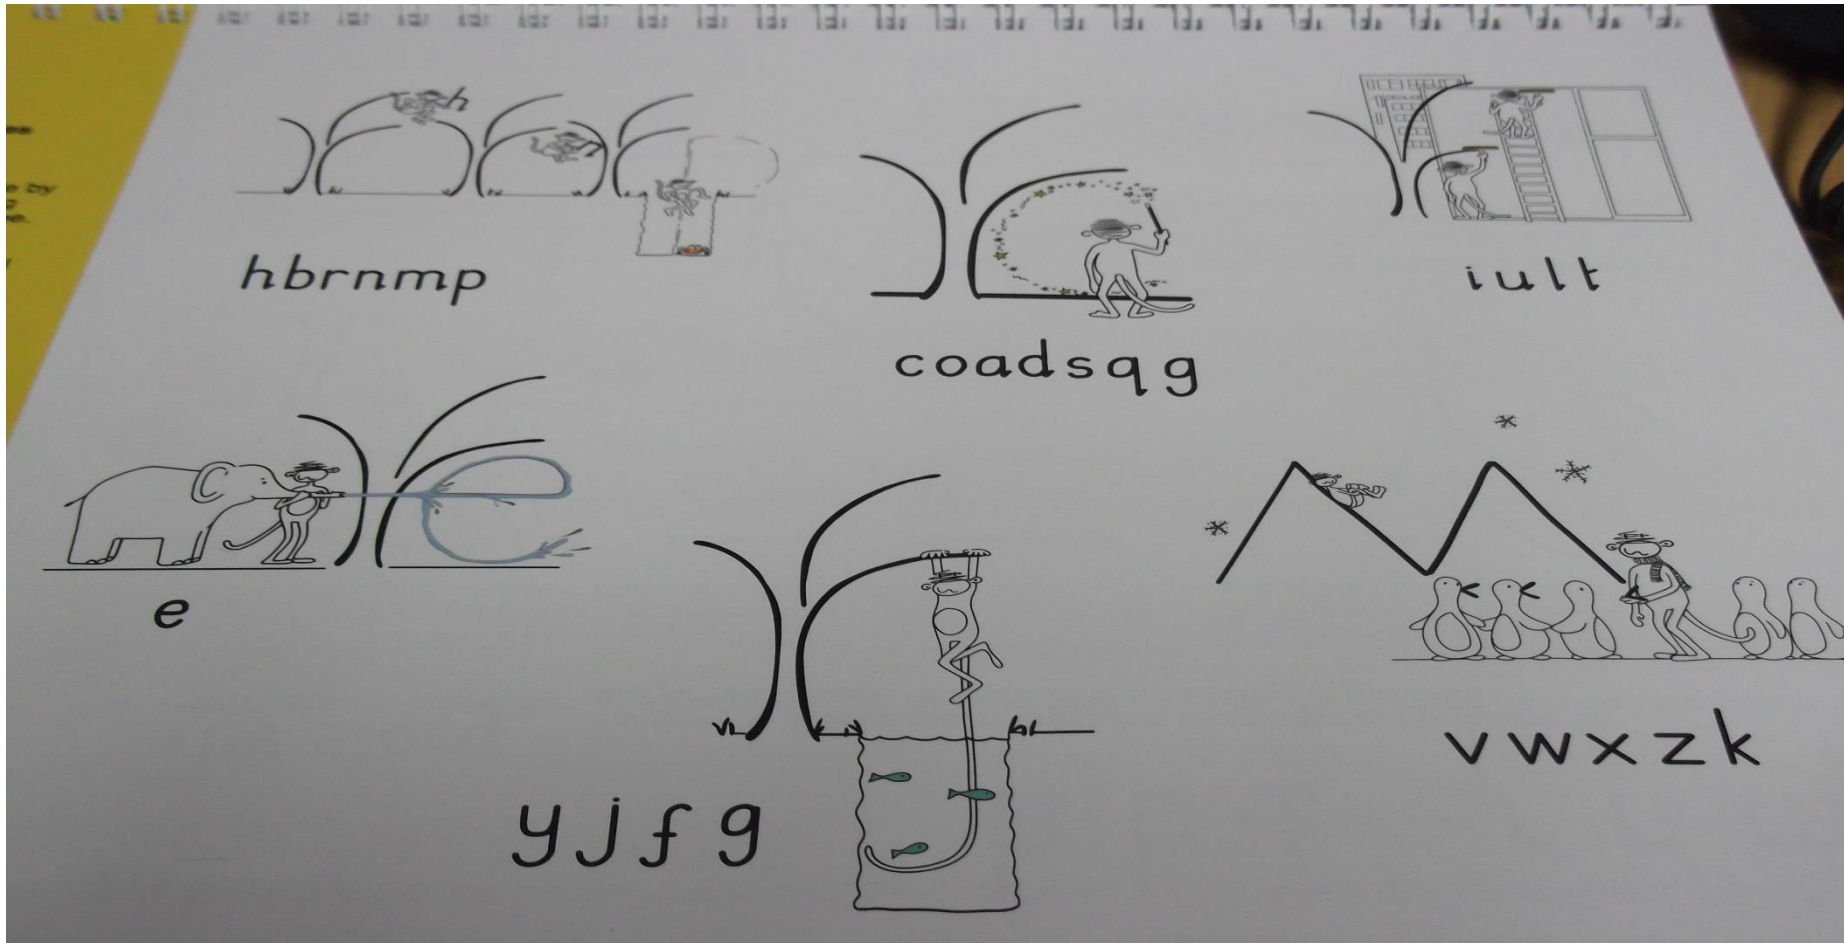 hbrnmp
coadsqg
iult
e
yjfg
vwxzk